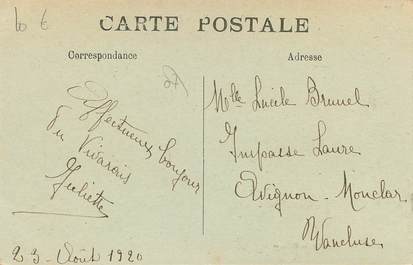 10 €
CARTE POSTALE
Correspondance
Adresse
Affectueux bonjour
du Vivarais
Juliette
23 Août 1920
Mlle Lucile Brunel
Impasse Laure
Avignon - Monclar
Vaucluse